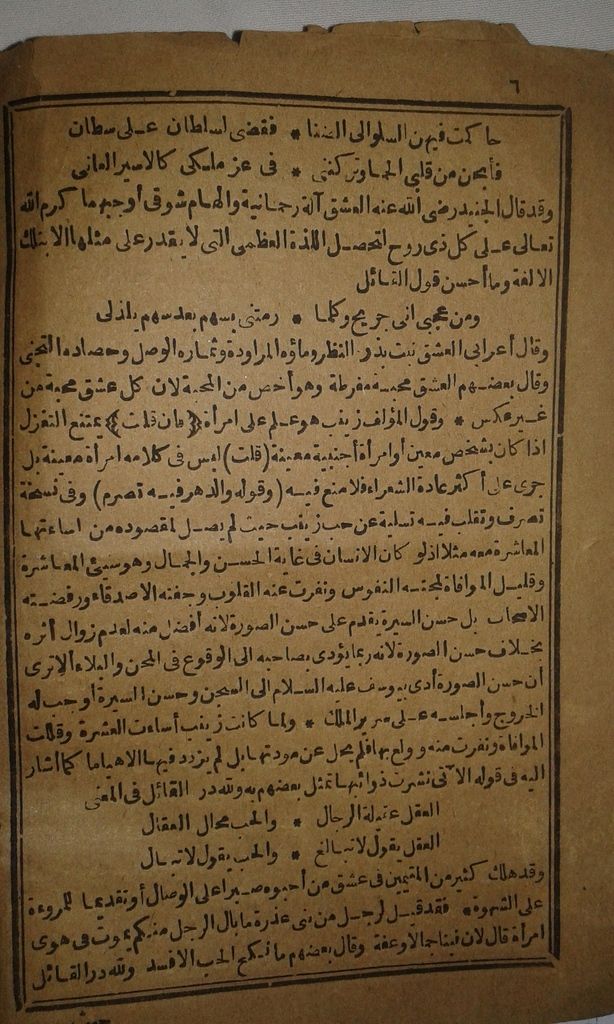 ٦
حاكمت فيهن السلو الى الضنا * فقضى لسلطان على سطان
فأبحن من قلبي الحمى وتركنني * فى عز ملكى كالاسير العانى
وقد قال الجنيد رضى الله عنه العشق آلة رحمانية والهام شوقى أوجبهما كرم الله
تعالى على كل ذى روح لتحصل اللذة العظمى التى لا يقدر على مثلها الا بتلك
الالفة وما أحسن قول القائل
ومن عجبى انى جريح وكلما * رمتنى بسهم بعد سهم يلذلى
وقال أعرابى العشق نبت بذره النظر وماؤه المراودة وثماره الوصل وحصاده التجنى
وقال بعضهم العشق محبة مفرطة وهو أخص من المحبة لان كل عشق محبة من
غير عكس * وقول المؤلف زينب هو علم على امرأة (فان قلت) يمتنع التغزل
اذا كان بشخص معين أو امرأة أجنبية معينة (قلت) ليس فى كلامه امرأة معينة بل
جرى على أكثر عادة الشعراء فلا منع فيه (وقوله والدهر فيه تصرم) وفى نسخة
تصرف وتقلب فيه تسلية عن حب زينب حيث لم يصل لمقصوده من اساءتها
المعاشرة معه مثلا اذ لو كان الانسان فى غاية الحسن والجمال وهو سيئ المعاشرة
وقليل الموافاة لمجته النفوس ونفرت عنه القلوب وجفته الاصدقاء ورفضته
الاصحاب بل حسن السيرة يقدم على حسن الصورة لانه أفضل منه لعدم زوال أثره
بخلاف حسن الصورة لانه ربما يؤدى بصاحبه الى الوقوع فى المحن والبلاء ألا ترى
أن حسن الصورة أدى بيوسف عليه السلام الى السجن وحسن السيرة أوجب له
الخروج وأجلسه على سرير الملك * ولما كانت زينب أساءت العشرة وقللت
الموافاة ونفرت منه وولع بها فلم يحل عن مودتها بل لم يزدد فيها الا هياما كما أشار
اليه فى قوله الآتى نشرت ذوائبها تمثل بعضهم به ولله در القائل فى المعنى
العقل عقيلة الرجال * والحب محال العقال
العقل يقول لا تبالغ * والحب يقول لا تبال
وقد هلك كثير من المتيمين فى عشق من أحبوه صبرا على الوصال أو تقديما للمروءة
على الشهوة * فقد قيل لرجل من بنى عذرة ما بال الرجل منكم يموت فى هوى
امرأة قال لان فينا جمالا وعفة وقال بعضهم ما نكح الحب الا فسد ولله در القائل